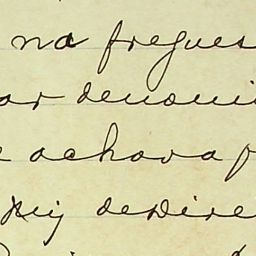 na fregues
ar denomi
e achava f
Rey desire